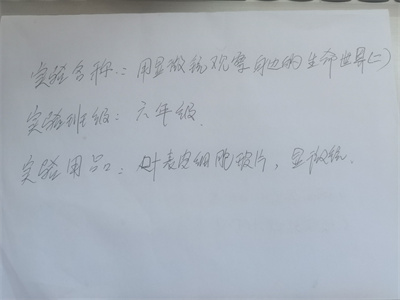 实验名称：用显微镜观察身边的生命世界(二)
实验班级：六年级.
实验用品：叶表皮细胞玻片，显微镜.